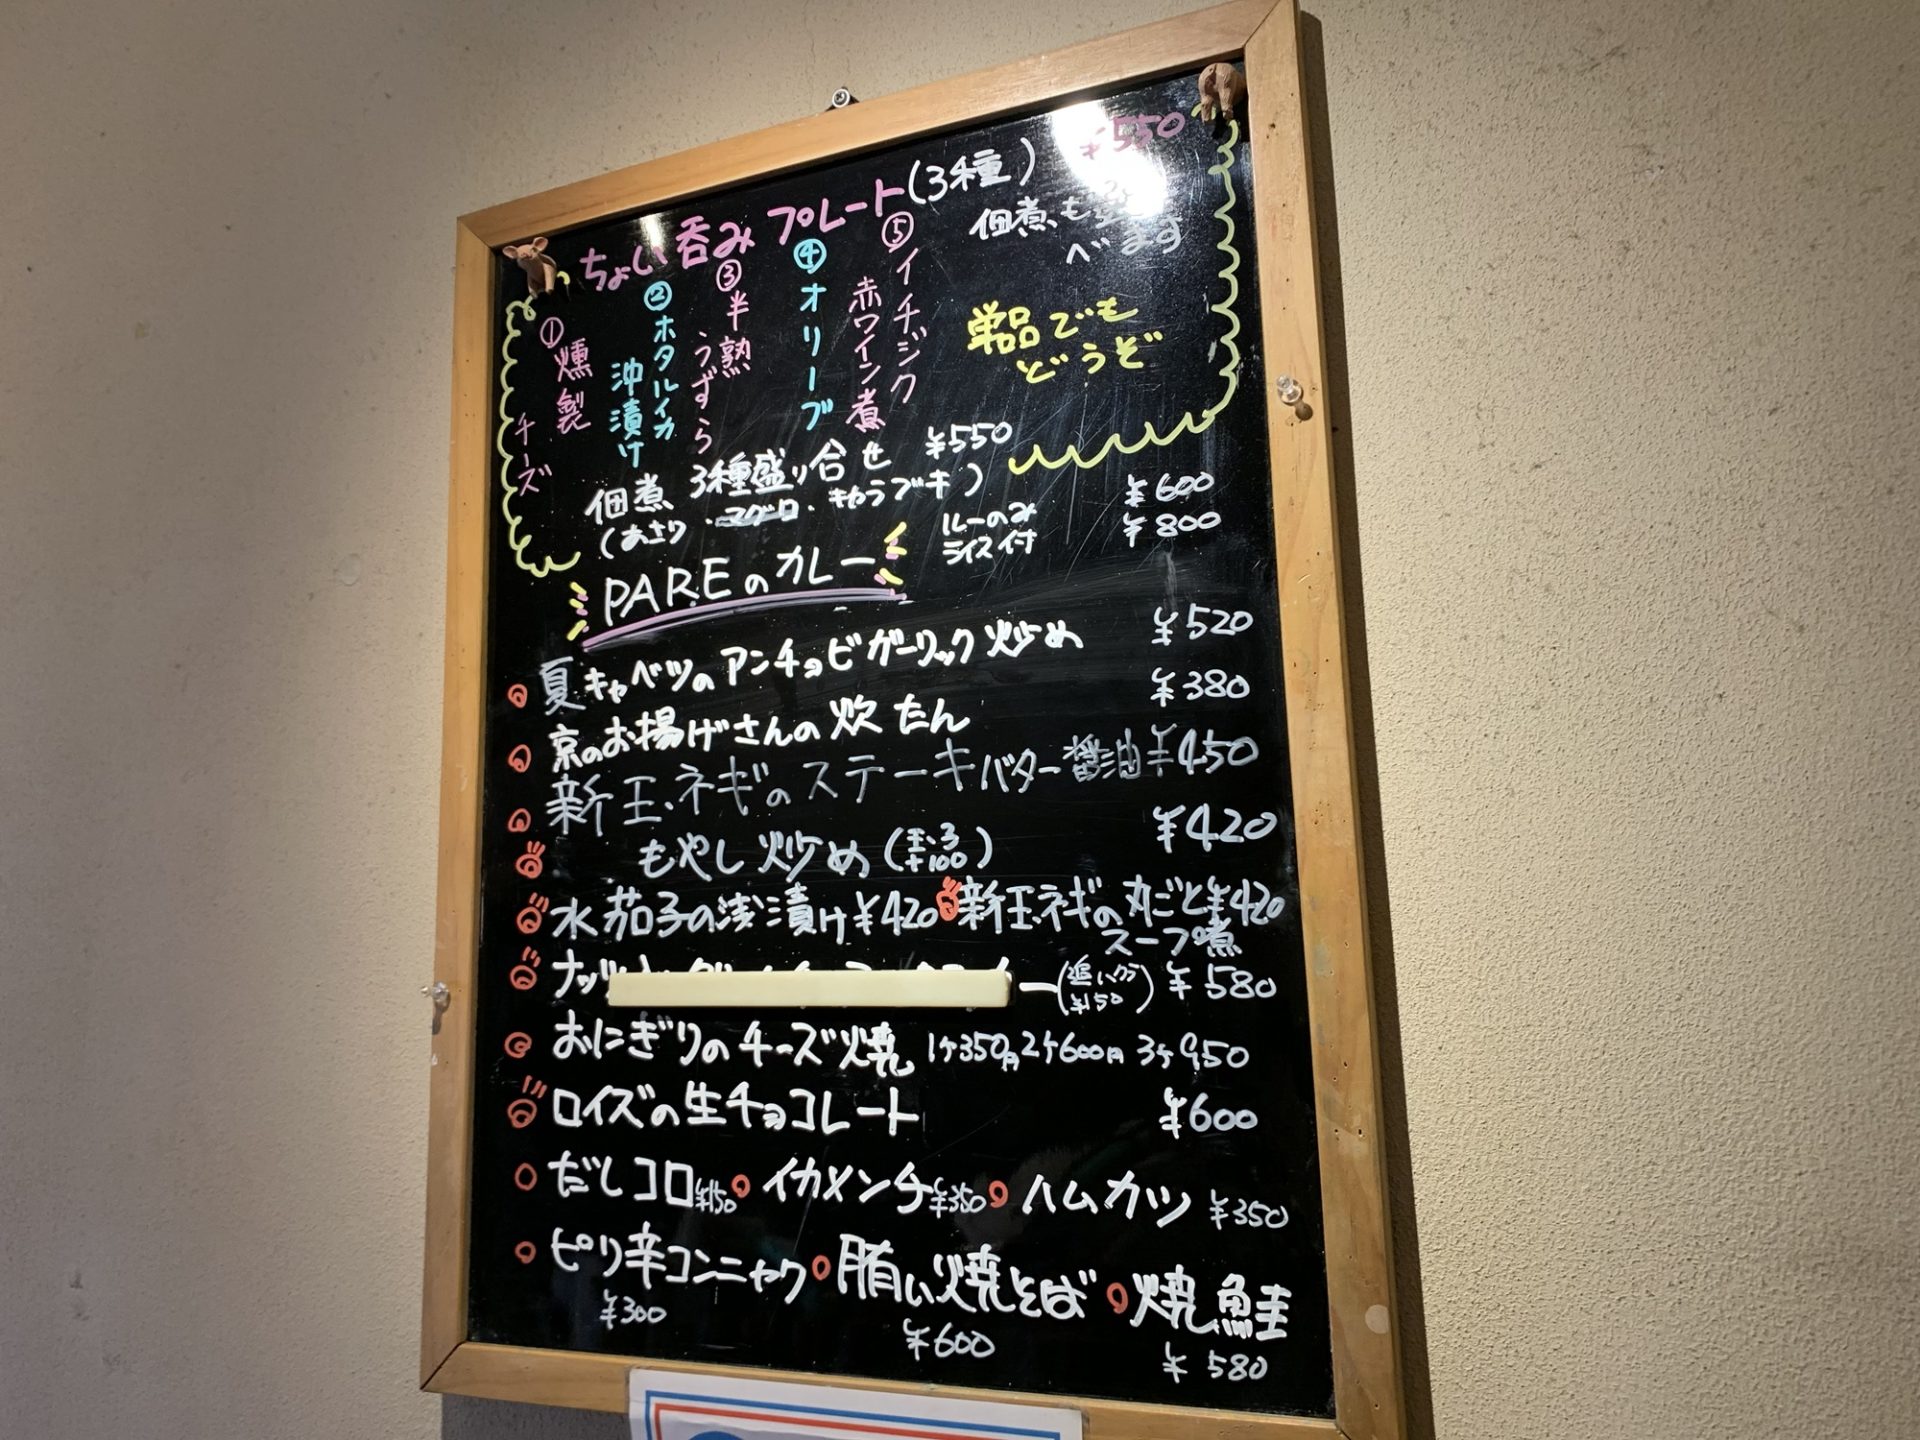 ちょい呑みプレート(3種) ¥550
佃煮も選べます
①燻製チーズ
②ホタルイカ沖漬け
③半熟うずら
④オリーブ
⑤イチジク赤ワイン煮
単品でも
どうぞ
佃煮 3種盛り合せ ¥550
(あさり・マグロ・キャラブキ)
PAREのカレー
ルーのみ ¥600
ライス付 ¥800
夏キャベツのアンチョビガーリック炒め ¥520
京のお揚げさんの炊たん ¥380
新玉ネギのステーキバター醤油 ¥450
もやし炒め(玉子+100) ¥420
水茄子の浅漬け ¥420 新玉ネギの丸ごと ¥420
スープ煮
ナッツ (追いクラ ¥150) ¥580
おにぎりのチーズ焼 1ケ350円 2ケ600円 3ケ950
ロイズの生チョコレート ¥600
だしコロ¥150 イカメンチ¥350 ハムカツ ¥350
ピリ辛コンニャク 賄い焼そば 焼鮭
¥300 ¥600 ¥580